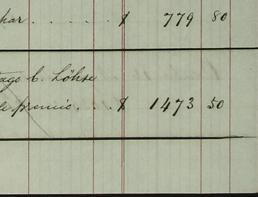 par . . . . . $ 779 80
tago C. Löhse
le premio . . . . $ 1473 50